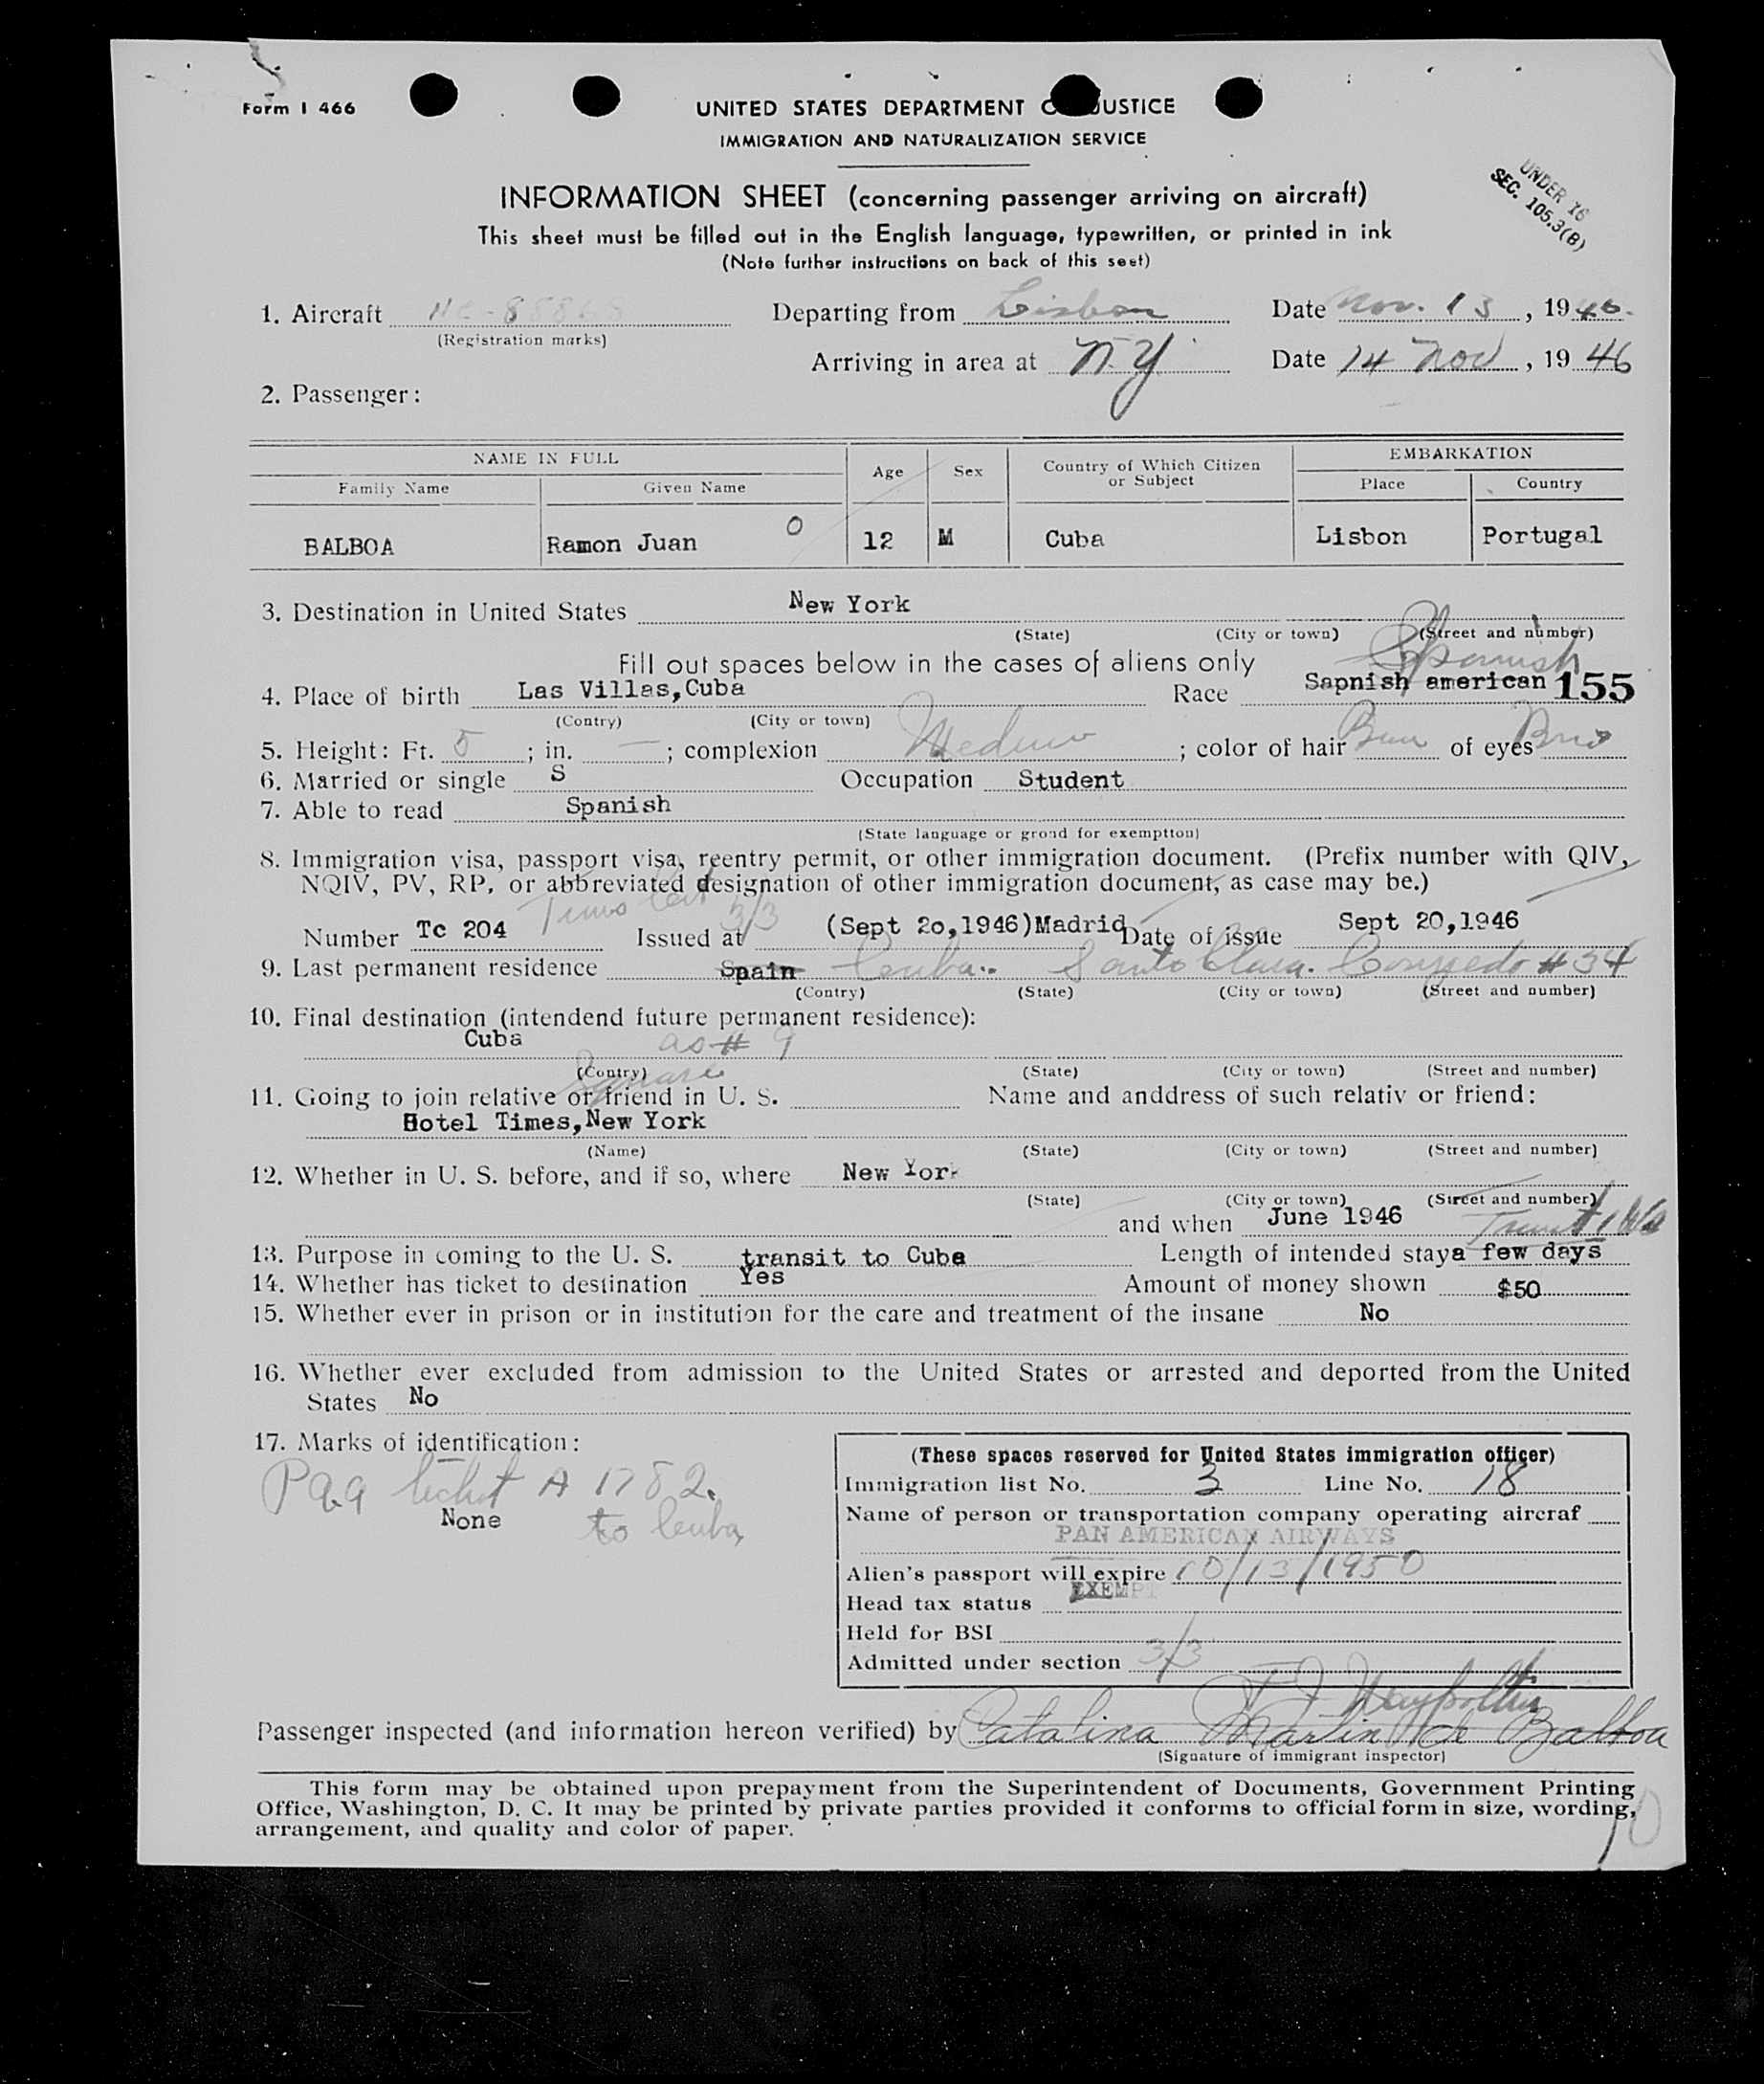 Form I 466
UNITED STATES DEPARTMENT O JUSTICE
IMMIGRATION AND NATURALIZATION SERVICE
INFORMATION SHEET (concerning passenger arriving on aircraft)
UNDER 16
SEC. 105.3(B)
This sheet must be filled out in the English language, typewritten, or printed in ink
(Note further instructions on back of this seet)
1. Aircraft NC-88868 Departing from Lisbon Date Nov. 13, 1946.
(Registration marks)
Arriving in area at N.Y. Date 14 Nov, 19 46
2. Passenger:
NAME IN FULL Age Sex Country of Which Citizen or Subject EMBARKATION
Family Name Given Name Place Country
BALBOA Ramon Juan O 12 M Cuba Lisbon Portugal
3. Destination in United States New York
(State) (City or town) (Street and number)
Fill out spaces below in the cases of aliens only Spanish
4. Place of birth Las Villas,Cuba Race Sapnish american 155
(Contry) (City or town)
5. Height: Ft. 5; in. —; complexion Medium; color of hair Brn of eyes Brn
6. Married or single S Occupation Student
7. Able to read Spanish
(State language or grond for exemptton)
8. Immigration visa, passport visa, reentry permit, or other immigration document. (Prefix number with QIV,
NQIV, PV, RP, or abbreviated designation of other immigration document, as case may be.)
Number Tc 204 3/3 Issued at (Sept 2o,1946)Madrid Date of issue Sept 20,1946
9. Last permanent residence Spain Cuba. Santa Clara. #34
(Contry) (State) (City or town) (Street and number)
10. Final destination (intendend future permanent residence):
Cuba as # 9
(Contry) (State) (City or town) (Street and number)
Square
11. Going to join relative or friend in U. S. Name and anddress of such relativ or friend:
Hotel Times,New York
(Name) (State) (City or town) (Street and number)
12. Whether in U. S. before, and if so, where New York
(State) (City or town) (Street and number)
and when June 1946 Transit
13. Purpose in coming to the U. S. transit to Cuba Length of intended stay a few days
14. Whether has ticket to destination Yes Amount of money shown $50
15. Whether ever in prison or in institution for the care and treatment of the insane No
16. Whether ever excluded from admission to the United States or arrested and deported from the United
States No
17. Marks of identification:
Paa ticket A 1782.
None to Cuba
(These spaces reserved for United States immigration officer)
Immigration list No. 3 Line No. 18
Name of person or transportation company operating aircraf
PAN AMERICAN AIRWAYS
Alien's passport will expire 10/13/1950
EXEMPT
Head tax status
Held for BSI
Admitted under section 3/3
Passenger inspected (and information hereon verified) by Catalina Martin de Balboa
(Signature of immigrant inspector)
This form may be obtained upon prepayment from the Superintendent of Documents, Government Printing
Office, Washington, D. C. It may be printed by private parties provided it conforms to official form in size, wording,
arrangement, and quality and color of paper.